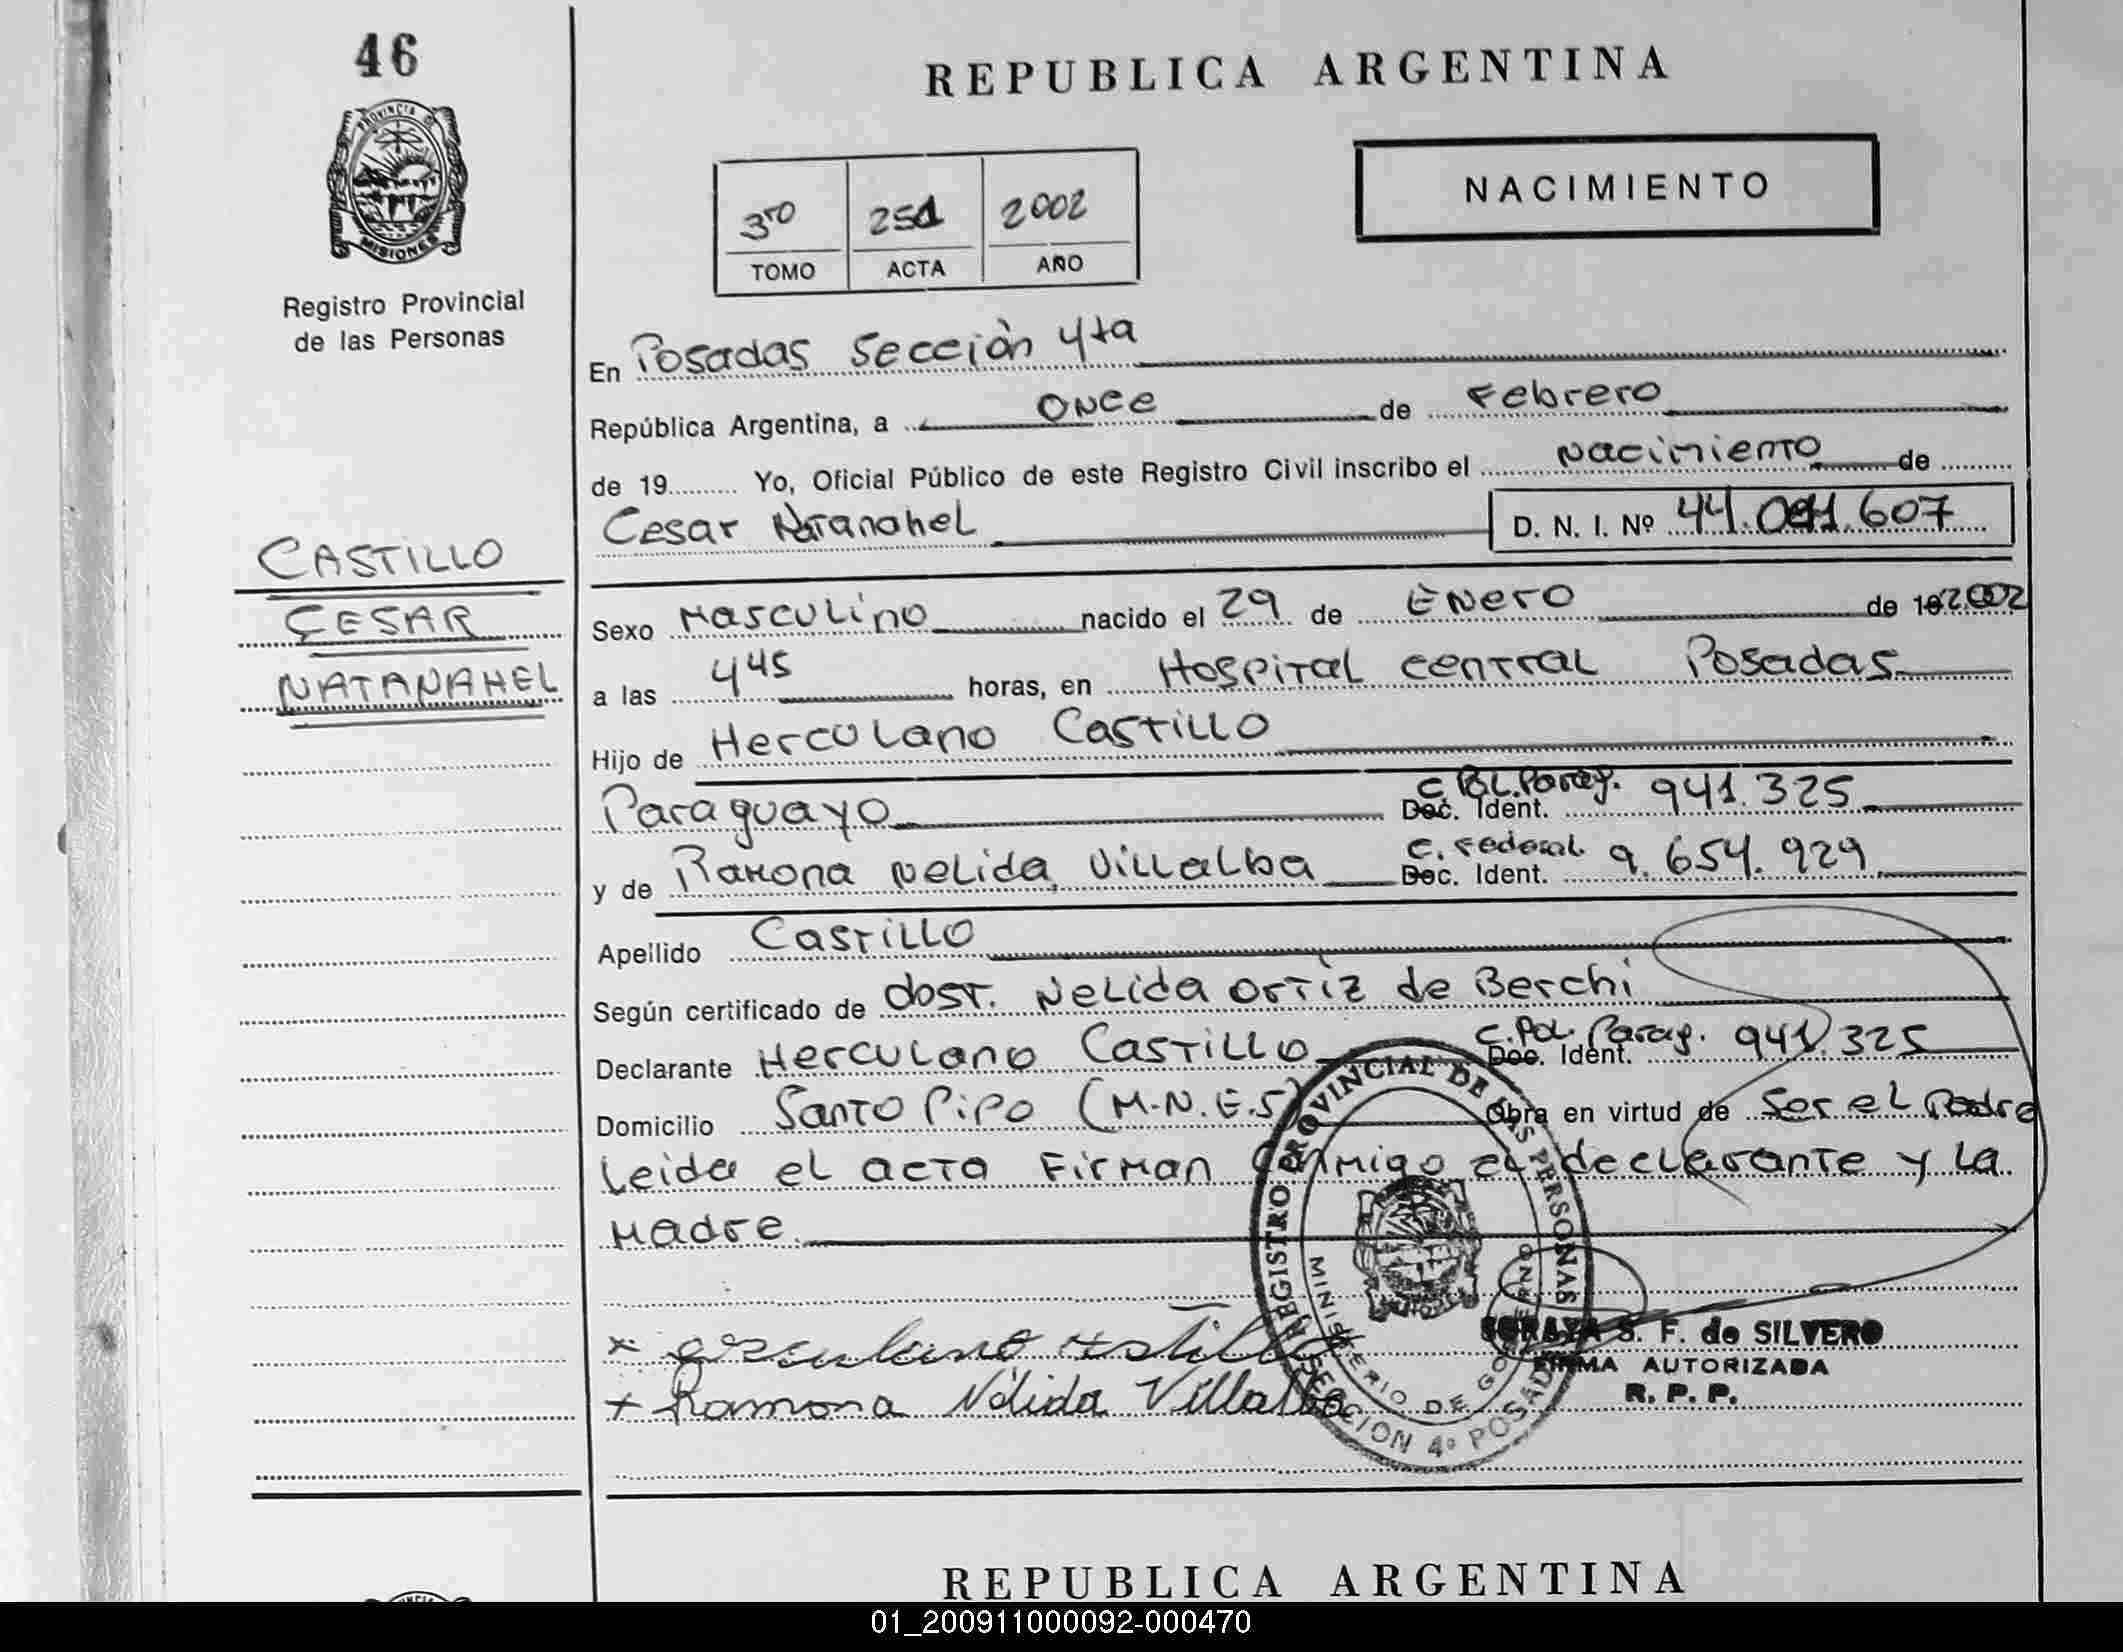 46
PROVINCIA DE
MISIONES
Registro Provincial
de las Personas
CASTILLO
CESAR
NATANAHEL
REPUBLICA ARGENTINA
3ro 251 2002
TOMO ACTA AÑO
NACIMIENTO
En Posadas Sección 4ta
República Argentina, a once de Febrero
de 19 Yo, Oficial Público de este Registro Civil inscribo el Nacimiento de
Cesar Natanahel D. N. I. Nº 44.091.607
Sexo Masculino nacido el 29 de Enero de 2002
a las 4 45 horas, en Hospital central Posadas
Hijo de Herculano Castillo
Paraguayo C. Pol. Parag. Doc. Ident. 941.325
y de Ramona Nelida Villalba C. Federal Doc. Ident. 9.654.929
Apellido Castillo
Según certificado de obst. Nelida Ortiz de Berchi
Declarante Herculano Castillo C. Pol. Parag. Doc. Ident. 941.325
Domicilio Santo Pipo (M.N.E.S) Obra en virtud de Ser el Padre
Leida el acta Firman conmigo el declarante y la
Madre
x erculano astillo
+ Ramona Nélida Villalba
REGISTRO PROVINCIAL DE LAS PERSONAS
MINISTERIO DE GOBIERNO
SECCION 4º POSADAS
SORAYA S. F. de SILVERO
FIRMA AUTORIZADA
R. P. P.
REPUBLICA ARGENTINA
01_200911000092-000470